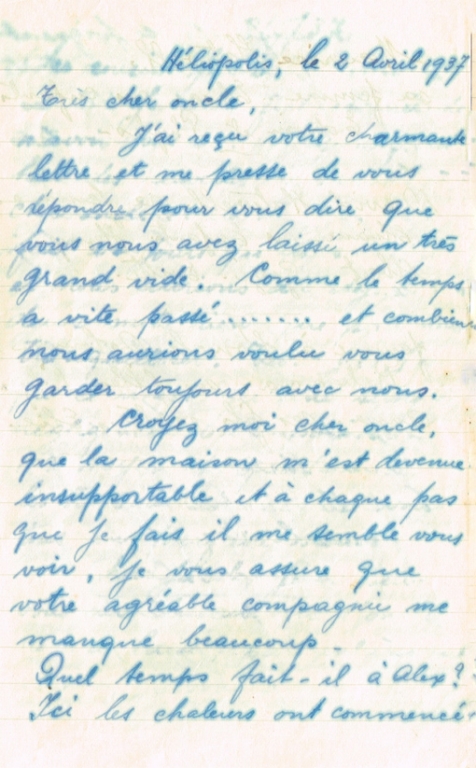 Héliopolis, le 2 Avril 1937
Très cher oncle,
J'ai reçu votre charmante
lettre et me presse de vous
répondre pour vous dire que
vous nous avez laissé un très
grand vide. Comme le temps
a vite passé ........ et combien
nous aurions voulu vous
garder toujours avec nous.
Croyez moi cher oncle,
que la maison m'est devenue
insupportable et à chaque pas
que je fais il me semble vous
voir, je vous assure que
votre agréable compagnie me
manque beaucoup.
Quel temps fait-il à Alex?
Ici les chaleurs ont commencé